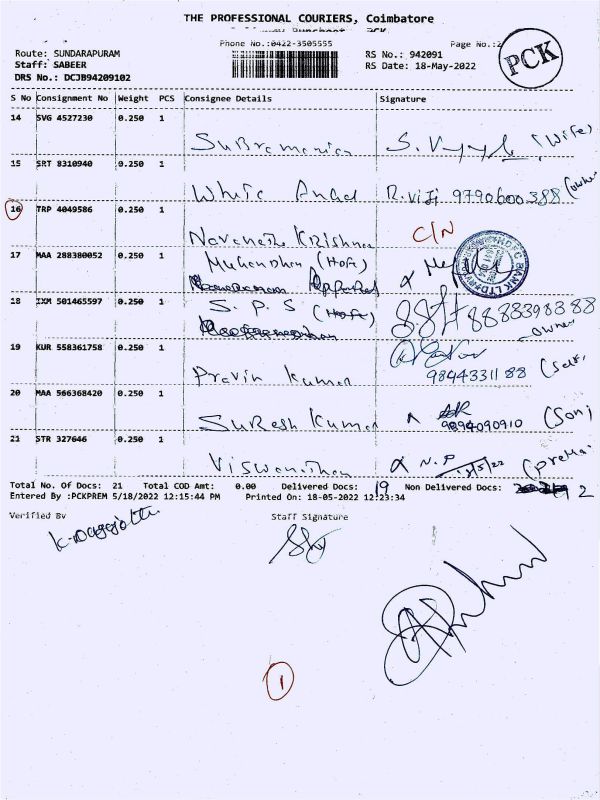 THE PROFESSIONAL COURIERS, Coimbatore
Phone No.:0422-3505555 Page No.:2
PCK
Route: SUNDARAPURAM RS No.: 942091
Staff: SABEER RS Date: 18-May-2022
DRS No.: DCJB94209102
S No Consignment No Weight PCS Consignee Details Signature
14 SVG 4527230 0.250 1
Subramanian (Wife)
15 SRT 8310940 0.250 1
R.Viji 9790600388 (owner
16 TRP 4049586 0.250 1
Krishna C/N
17 MAA 288380052 0.250 1
(Hofe)
HDFC BANK LTD
18 IXM 501465597 0.250 1
S. P. S (Hofe) 8883398388
owner
19 KUR 558361758 0.250 1
Pravin Kumar 9844331188 (Self,
20 MAA 566368420 0.250 1
Suresh Kumar 9894090910 (Son)
21 STR 327646 0.250 1
Viswanathan N.P 18/5/22 (prema.
Total No. Of Docs: 21 Total COD Amt: 0.00 Delivered Docs: 19 Non Delivered Docs: 2
Entered By :PCKPREM 5/18/2022 12:15:44 PM Printed On: 18-05-2022 12:23:34
Verified By Staff Signature
1